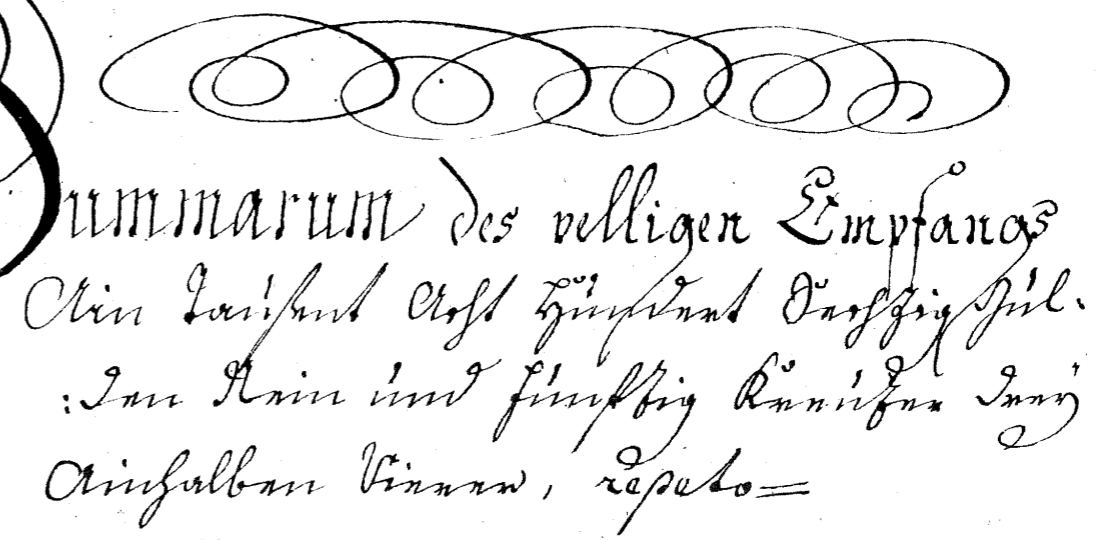 Summarum des velligen Empfangs
Ain Taußent Acht Hundert Sechzig Gul:
:den Rein und funfftzig Kreutzer drey
Ainhalben Vierer,